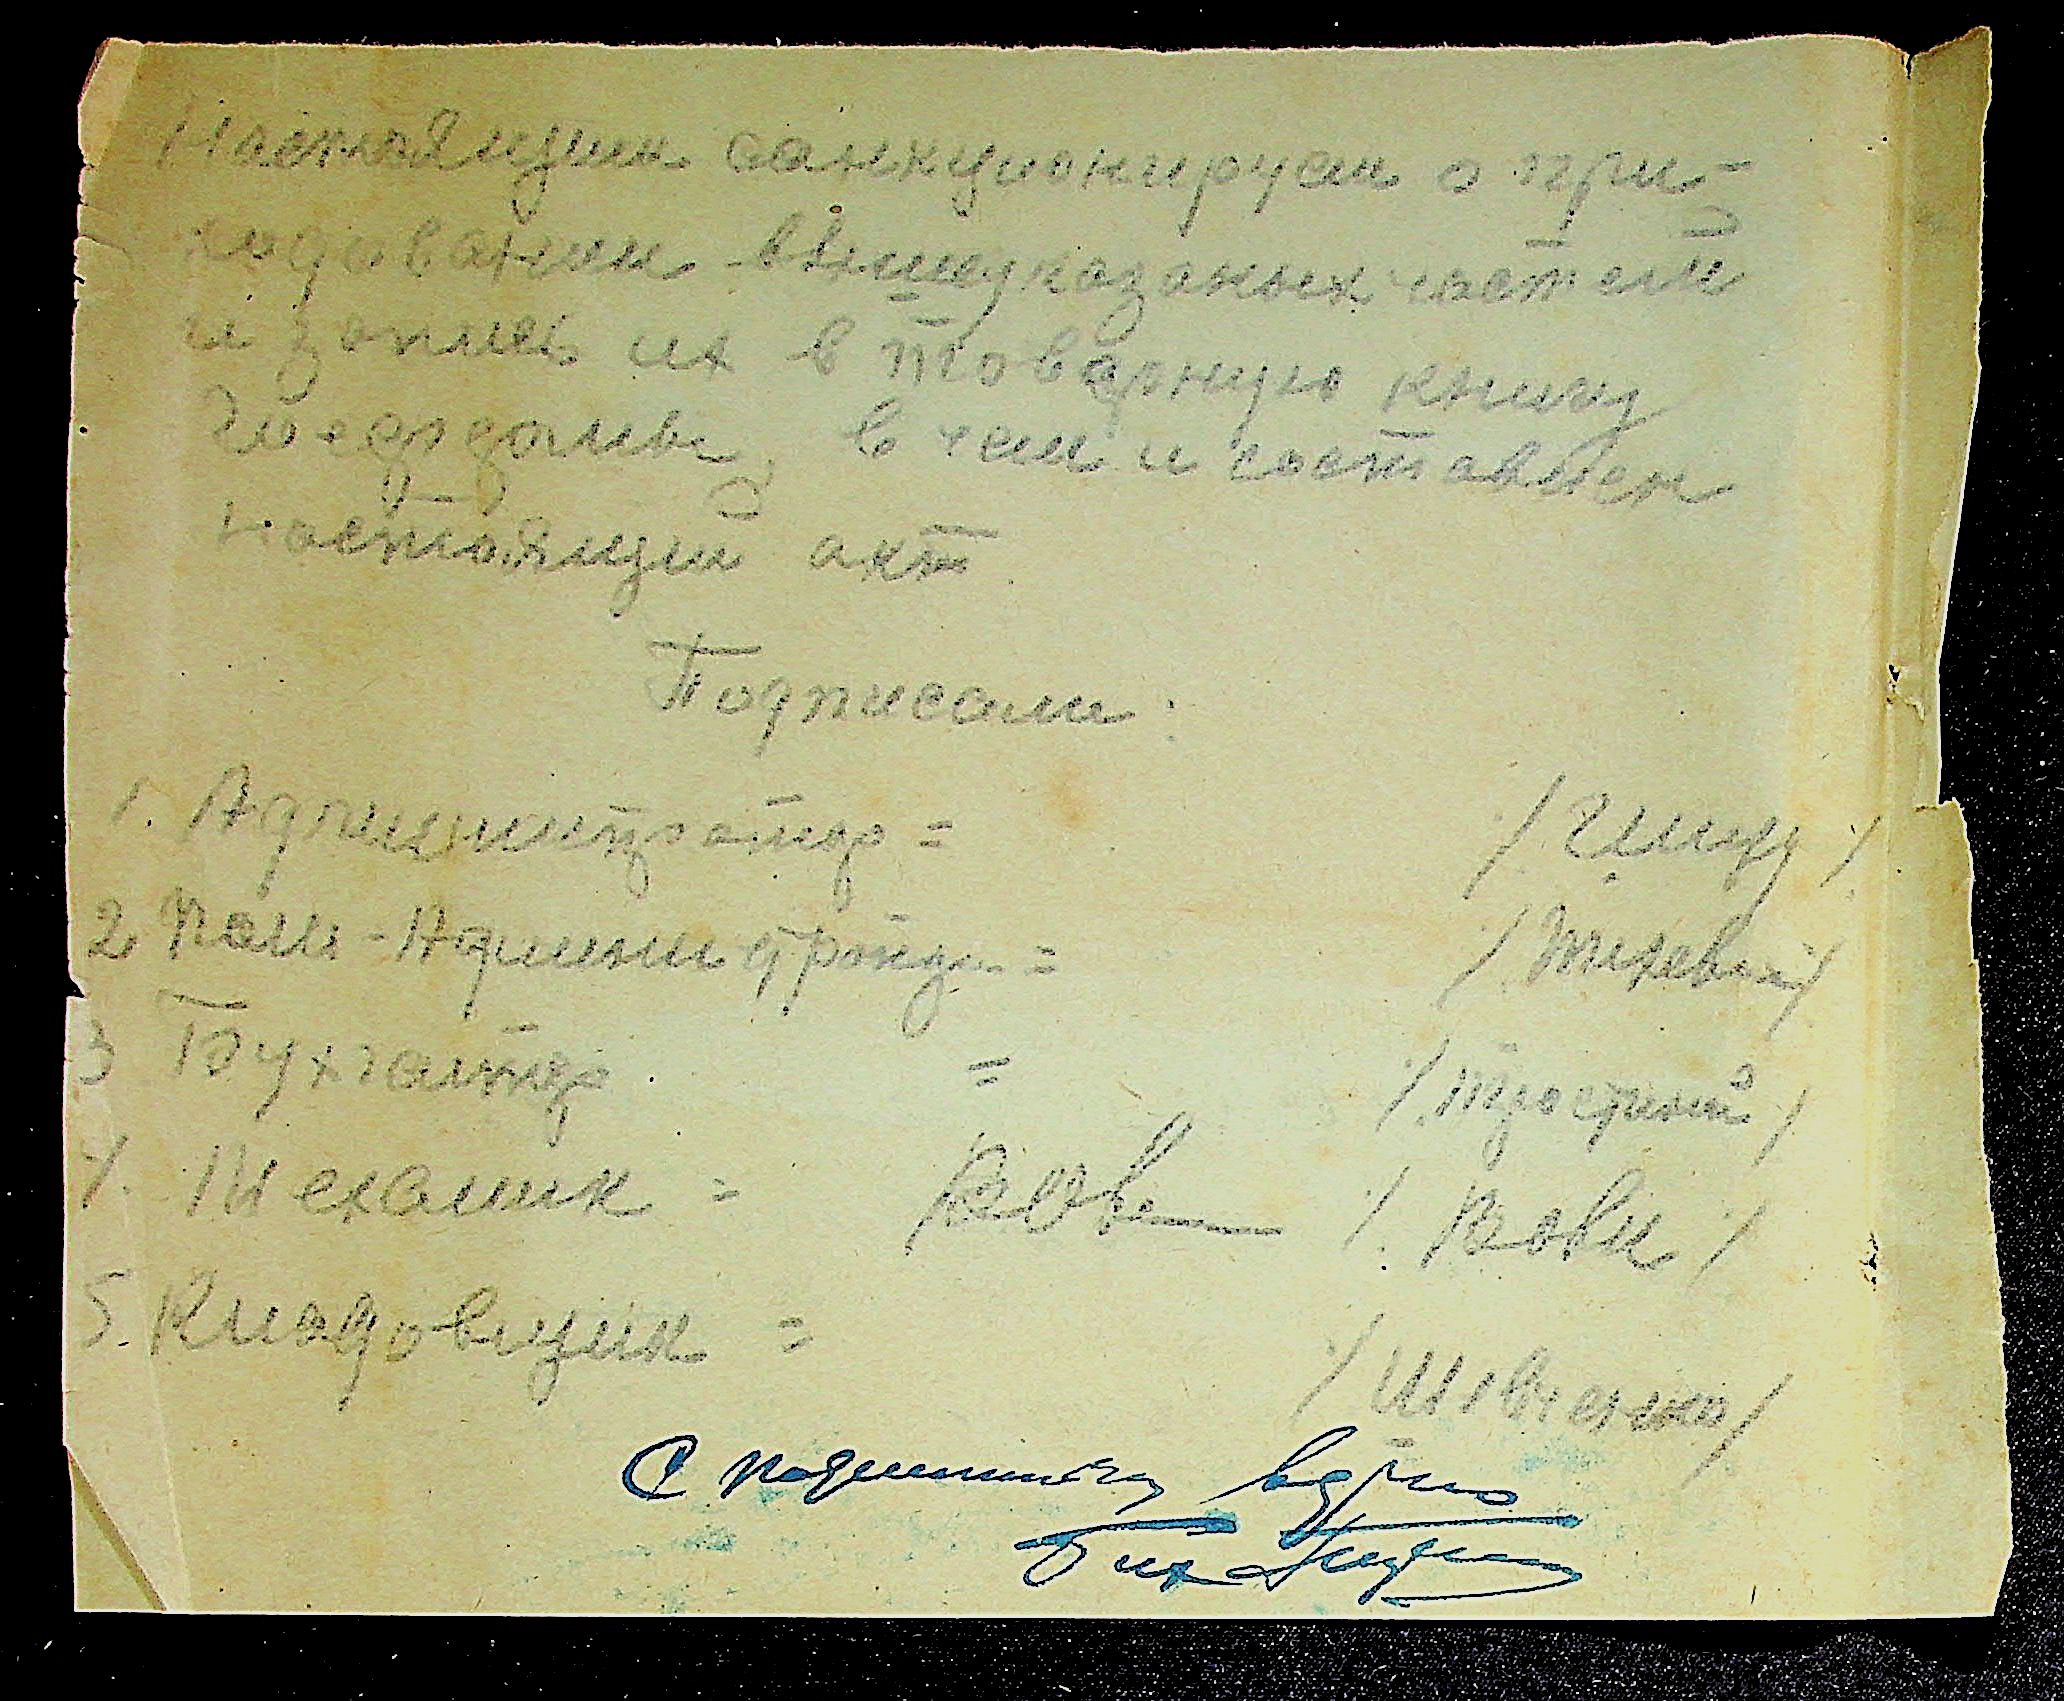 Настоящим санкционируем о при-
ходовании вышеуказаных частей
и запись их в товарную книгу
в чем и составлен
настоящий акт
Подписали:
1. Администратор =
2. Пом-Администратора =
3 Бухгалтер =
4. Механик = /Вове/
5. Кладовщик = /Шевченко/
С подлинным верно